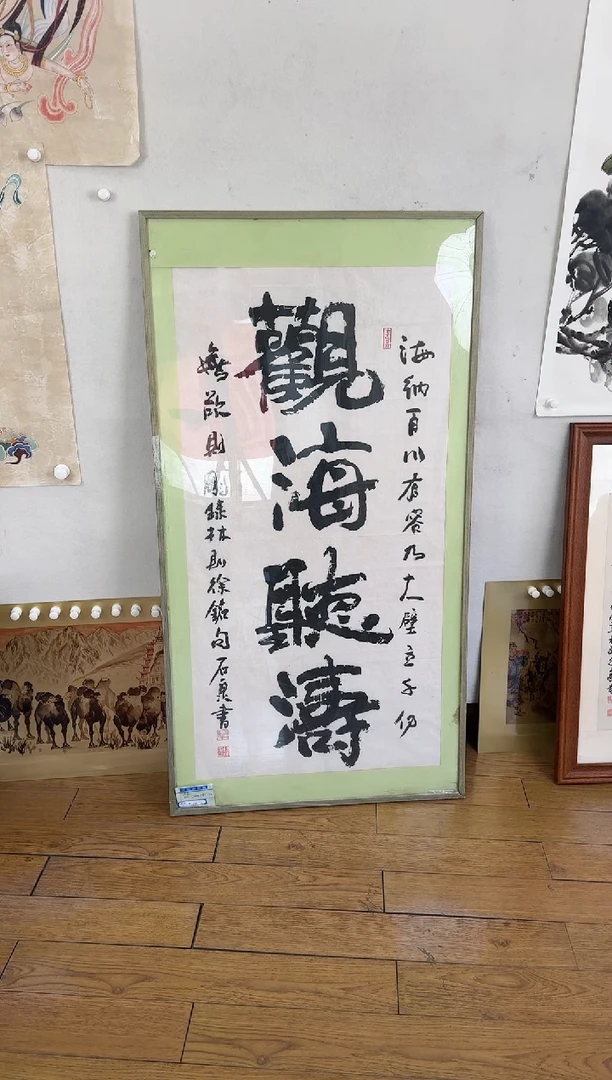 海納百川有容乃大壁立千仞
觀海聽濤
無欲則剛錄林則徐銘句石泉書